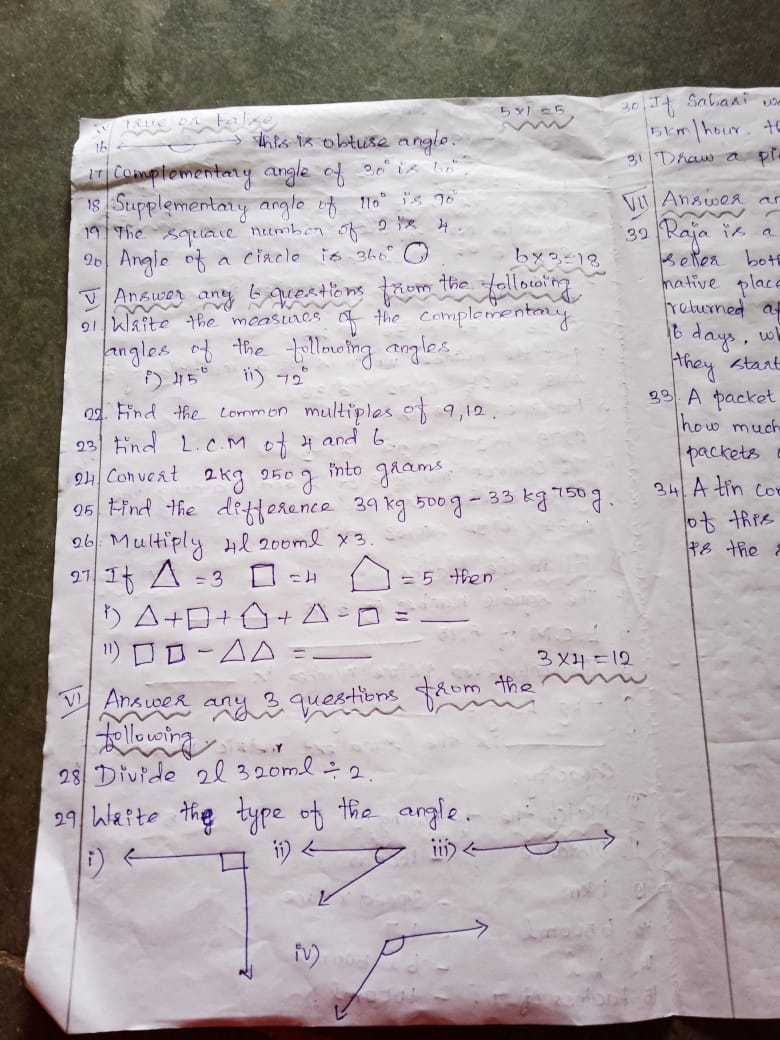 IV True or False 5x1=5
16 this is obtuse angle.
17 Complementary angle of 30° is 60°.
18 Supplementary angle of 110° is 90°.
19 The square number of 2 is 4.
20 Angle of a circle is 360°
6x3=18
V Answer any 6 questions from the following
21 Write the measures of the complementary
angles of the following angles.
i) 45° ii) 72°
22. Find the common multiples of 9,12.
23 Find L.C.M of 4 and 6.
24 Convert 2kg 250g into grams.
25 Find the difference 39kg 500g - 33 kg 750g.
26. Multiply 4l 200ml x3.
27 If △ =3 □ =4 ⌂ =5 then
i) △+□+⌂+△-□ = __
ii) □□ - △△ = __
3x4=12
VI Answer any 3 questions from the
following.
28 Divide 2l 320ml ÷ 2.
29 Write the type of the angle.
i) ii) iii)
iv)
30 If Sabari
5km/hour.
31 Draw a
VII Answer
32 Raja is a
seller
native
returned
16 days.
they start
33. A packet
how much
packets
34. A tin
of this
is the